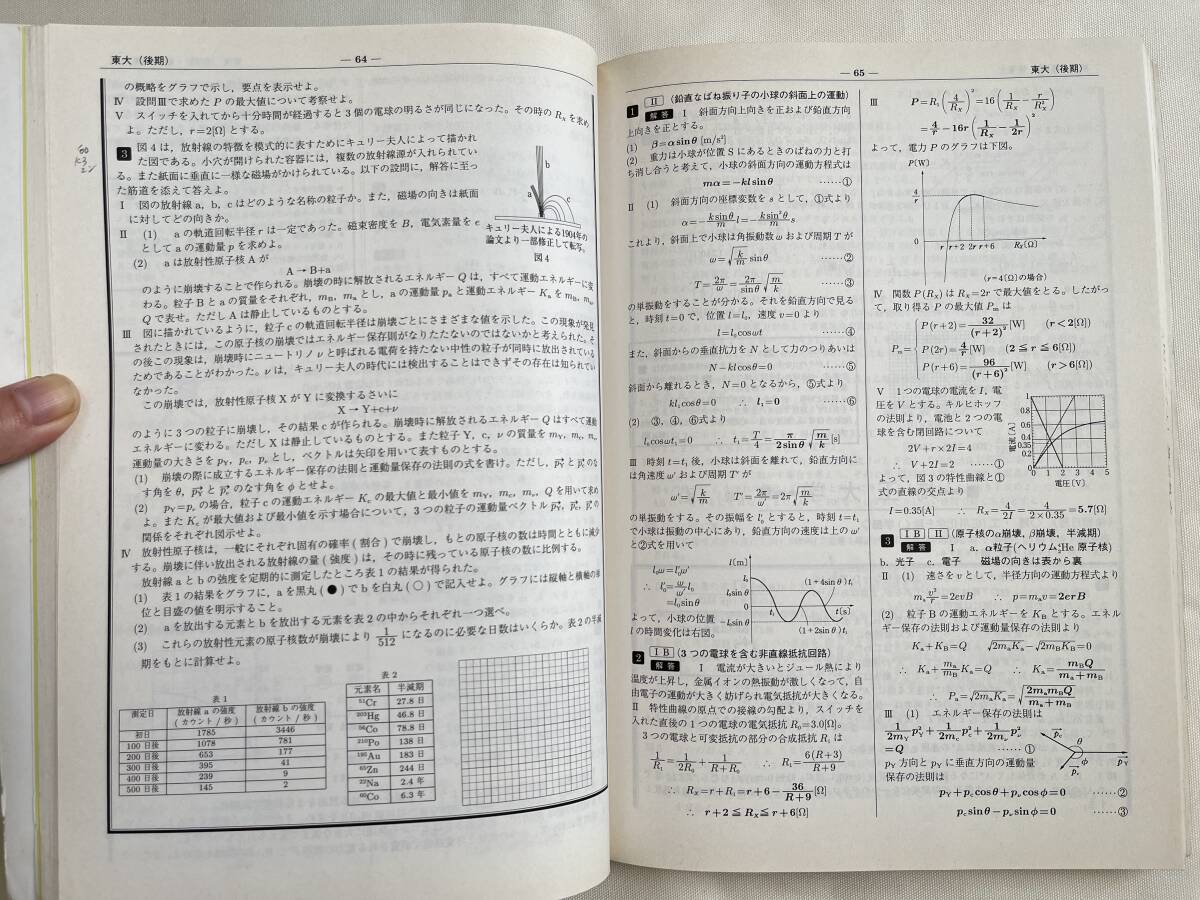 東大（後期）
― 64 ―
の概略をグラフで示し，要点を表示せよ．
Ⅳ 設問Ⅲで求めた P の最大値について考察せよ．
Ⅴ スイッチを入れてから十分時間が経過すると3個の電球の明るさが同じになった。その時の Rx を求め
よ。ただし，r=2[Ω]とする。
3 図4は，放射線の特徴を模式的に表すためにキュリー夫人によって描かれ
た図である。小穴が開けられた容器には，複数の放射線源が入れられてい
る。また紙面に垂直に一様な磁場がかけられている。以下の設問に，解答に至っ
た筋道を添えて答えよ。
Ⅰ 図の放射線 a，b，c はどのような名称の粒子か。また，磁場の向きは紙面
に対してどの向きか。
Ⅱ (1) a の軌道回転半径 r は一定であった。磁束密度を B，電気素量を e
として a の運動量 p を求めよ。
(2) a は放射性原子核 A が
A → B+a
a
b
c
キュリー夫人による1904年の
論文より一部修正して転写。
図4
のように崩壊することで作られる。崩壊の時に解放されるエネルギー Q は，すべて運動エネルギーに変
わる。粒子 B と a の質量をそれぞれ，mB，ma とし，a の運動量 pa と運動エネルギー Ka を mB，ma，
Q で表せ。ただし A は静止しているものとする。
Ⅲ 図に描かれているように，粒子 c の軌道回転半径は崩壊ごとにさまざまな値を示した。この現象が発見
されたときには，この原子核の崩壊ではエネルギー保存則がなりたたないのではないかと考えられた。そ
の後この現象は，崩壊時にニュートリノ ν と呼ばれる電荷を持たない中性の粒子が同時に放出されている
ためであることがわかった。ν は，キュリー夫人の時代には検出することはできずその存在は知られてい
なかった。
この崩壊では，放射性原子核 X が Y に変換するさいに
X → Y+c+ν
のように3つの粒子に崩壊し，その結果 c が作られる。崩壊時に解放されるエネルギー Q はすべて運動
エネルギーに変わる。ただし X は静止しているものとする。また粒子 Y，c，ν の質量を mY，mc，mν，
運動量の大きさを pY，pc，pν とし，ベクトルは矢印を用いて表すものとする。
(1) 崩壊の際に成立するエネルギー保存の法則と運動量保存の法則の式を書け。ただし，pY と pc のな
す角を θ，pY と pν のなす角を φ とせよ。
(2) pY=pc の場合，粒子 c の運動エネルギー Kc の最大値と最小値を mY，mc，mν，Q を用いて求め
よ。また Kc が最大値および最小値を示す場合について，3つの粒子の運動量ベクトル pY，pc，pν の
関係をそれぞれ図示せよ。
Ⅳ 放射性原子核は，一般にそれぞれ固有の確率（割合）で崩壊し，もとの原子核の数は時間とともに減少
する。崩壊に伴い放出される放射線の量（強度）は，その時に残っている原子核の数に比例する。
放射線 a と b の強度を定期的に測定したところ表1の結果が得られた。
(1) 表1の結果をグラフに，a を黒丸(●)で b を白丸(○)で記入せよ。グラフには縦軸と横軸の単
位と目盛の値を明示すること。
(2) a を放出する元素と b を放出する元素を表2の中からそれぞれ一つ選べ。
(3) これらの放射性元素の原子核数が崩壊により 1/512 になるのに必要な日数はいくらか。表2の半減
期をもとに計算せよ。
表1
測定日 放射線 a の強度（カウント/秒） 放射線 b の強度（カウント/秒）
初日 1785 3446
100 日後 1078 781
200 日後 653 177
300 日後 395 41
400 日後 239 9
500 日後 145 2
表2
元素名 半減期
⁵¹Cr 27.8 日
²⁰³Hg 46.8 日
⁵⁶Co 78.8 日
²¹⁰Po 138 日
¹⁹⁵Au 183 日
⁶⁵Zn 244 日
²²Na 2.4 年
⁶⁰Co 6.3 年
― 65 ―
東大（後期）
1 Ⅱ （鉛直なばね振り子の小球の斜面上の運動）
解答 Ⅰ 斜面方向上向きを正および鉛直方向
上向きを正とする。
(1) β=α sinθ [m/s²]
(2) 重力は小球が位置 S にあるときのばねの力と打
ち消し合うと考えて，小球の斜面方向の運動方程式は
mα=-kl sinθ ……①
Ⅱ (1) 斜面方向の座標変数を s として，①式より
α=-(k sinθ/m)l=-(k sin²θ/m)s
これより，斜面上で小球は角振動数 ω および周期 T が
ω=√(k/m) sinθ ……②
T=2π/ω=(2π/sinθ)√(m/k) ……③
の単振動をすることが分かる。それを鉛直方向で見る
と，時刻 t=0 で，位置 l=l₀，速度 v=0 より
l=l₀cosωt ……④
また，斜面からの垂直抗力を N として力のつりあいは
N-kl cosθ=0 ……⑤
斜面から離れるとき，N=0 となるから，⑤式より
kl₁cosθ=0 ∴ l₁=0 ……⑥
(2) ③，④，⑥式より
l₀cosωt₁=0 ∴ t₁=T/4=(π/2sinθ)√(m/k) [s]
Ⅲ 時刻 t=t₁ 後，小球は斜面を離れて，鉛直方向に
は角速度 ω′ および周期 T′ が
ω′=√(k/m) T′=2π/ω′=2π√(m/k)
の単振動をする。その振幅を l₀′ とすると，時刻 t=t₁
で小球は振動の中心にあり，鉛直方向の速度は上の ω′
と②式を用いて
l₀ω=l₀′ω′
∴ l₀′=(ω/ω′)l₀
=l₀sinθ
よって，小球の位置
l の時間変化は右図。
l[m]
l₀
l₀sinθ
0
-l₀sinθ
t₁
(1+4sinθ)t₁
t[s]
(1+2sinθ)t₁
2 ⅠB （3つの電球を含む非直線抵抗回路）
解答 Ⅰ 電流が大きいとジュール熱により
温度が上昇し，金属イオンの熱振動が激しくなって，自
由電子の運動が大きく妨げられ電気抵抗が大きくなる。
Ⅱ 特性曲線の原点での接線の勾配より，スイッチを
入れた直後の1つの電球の電気抵抗 R₀=3.0[Ω]。
3つの電球と可変抵抗の部分の合成抵抗 R₁ は
1/R₁=1/2R₀+1/(R+R₀) ∴ R₁=6(R+3)/(R+9)
∴ Rx=r+R₁=r+6-36/(R+9)[Ω]
∴ r+2≦Rx≦r+6[Ω]
Ⅲ P=R₁(4/Rx)²=16(1/Rx-r/Rx²)
=4/r-16r(1/Rx-1/2r)²
よって，電力 P のグラフは下図。
P(W)
4/r
0
r r+2 2r r+6 Rx(Ω)
(r=4(Ω)の場合)
Ⅳ 関数 P(Rx) は Rx=2r で最大値をとる。したがっ
て，取り得る P の最大値 Pm は
P(r+2)=32/(r+2)²[W] (r<2[Ω])
Pm= P(2r)=4/r[W] (2≦r≦6[Ω])
P(r+6)=96/(r+6)²[W] (r>6[Ω])
Ⅴ 1つの電球の電流を I，電
圧を V とする。キルヒホッフ
の法則より，電池と2つの電
球を含む閉回路について
2V+r×2I=4
∴ V+2I=2 ……①
よって，図3の特性曲線と①
式の直線の交点より
電流[A]
1
0.8
0.6
0.4
0.35
0.2
0 1 2 3 4 5
電圧[V]
I=0.35[A] ∴ Rx=4/2I=4/(2×0.35)=5.7[Ω]
3 ⅠB Ⅱ （原子核のα崩壊，β崩壊，半減期）
解答 Ⅰ a. α粒子（ヘリウム⁴₂He 原子核）
b. 光子 c. 電子 磁場の向きは表から裏
Ⅱ (1) 速さを v として，半径方向の運動方程式より
ma v²/r=2evB ∴ p=mav=2erB
(2) 粒子 B の運動エネルギーを KB とする。エネル
ギー保存の法則および運動量保存の法則より
Ka+KB=Q √2maKa-√2mBKB=0
∴ Ka+(ma/mB)Ka=Q ∴ Ka=mBQ/(ma+mB)
∴ Pa=√2maKa=√(2mamBQ/(ma+mB))
Ⅲ (1) エネルギー保存の法則は
(1/2mY)pY²+(1/2mc)pc²+(1/2mν)pν²
=Q ……①
pY 方向と pY に垂直方向の運動量
保存の法則は
pc
θ
φ
pν
pY
pY+pc cosθ+pν cosφ=0 ……②
pc sinθ-pν sinφ=0 ……③